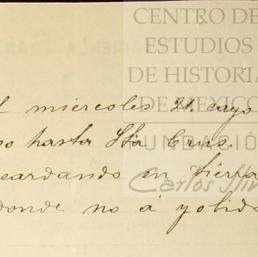 CENTRO DE
ESTUDIOS
DE HISTORIA
DE MEXICO
FUNDACIÓ
Carlos Sli
l miercoles 21. cayo
po hasta Sta Cruz.
cardando en tierra
donde no á